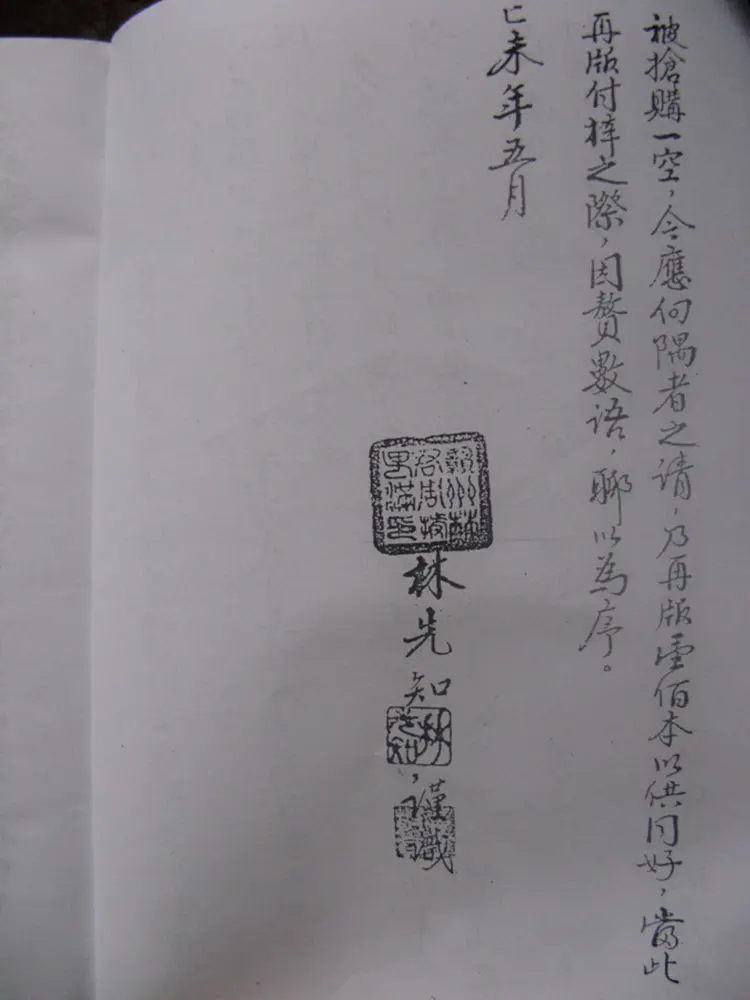 被搶購一空，今應向隅者之请，乃再版壹佰本以供同好，當此
再版付梓之際，因贅數语，聊以為序。
己未年五月
林先知，謹識